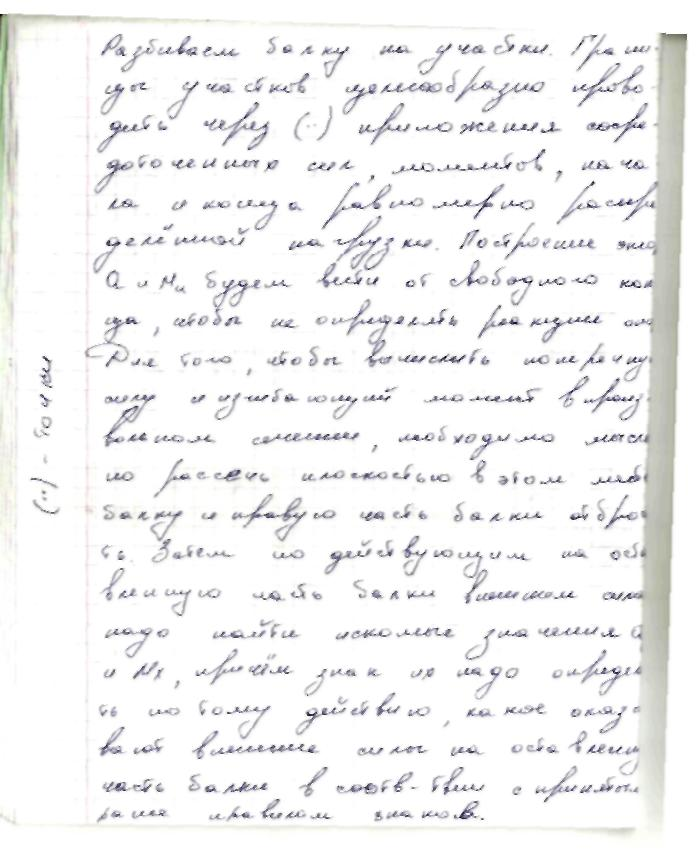 Разбиваем балку на участки. Грани-
цы участков целесообразно прово-
дить через (··) приложения сосре-
доточенных сил, моментов, нача-
ла и конца равномерно распре
делённой нагрузки. Построение эпю
Q и Mи будем вести от свободного кон
ца, чтобы не определять реакции опо
Для того, чтобы вычислить поперечну
силу и изгибающий момент в произ-
вольном сечении, необходимо мысле
но рассечь плоскостью в этом месте
балку и правую часть балки отброс
ть. Затем по действующим на оста
вленную часть балки внешним сила
надо найти искомые значения Q
и Mx, причём знак их надо определ
ть по тому действию, какое оказы
вают внешние силы на оставленну
часть балки в соотв-твии с принятым
ранее правилом знаков.
(··) - точки